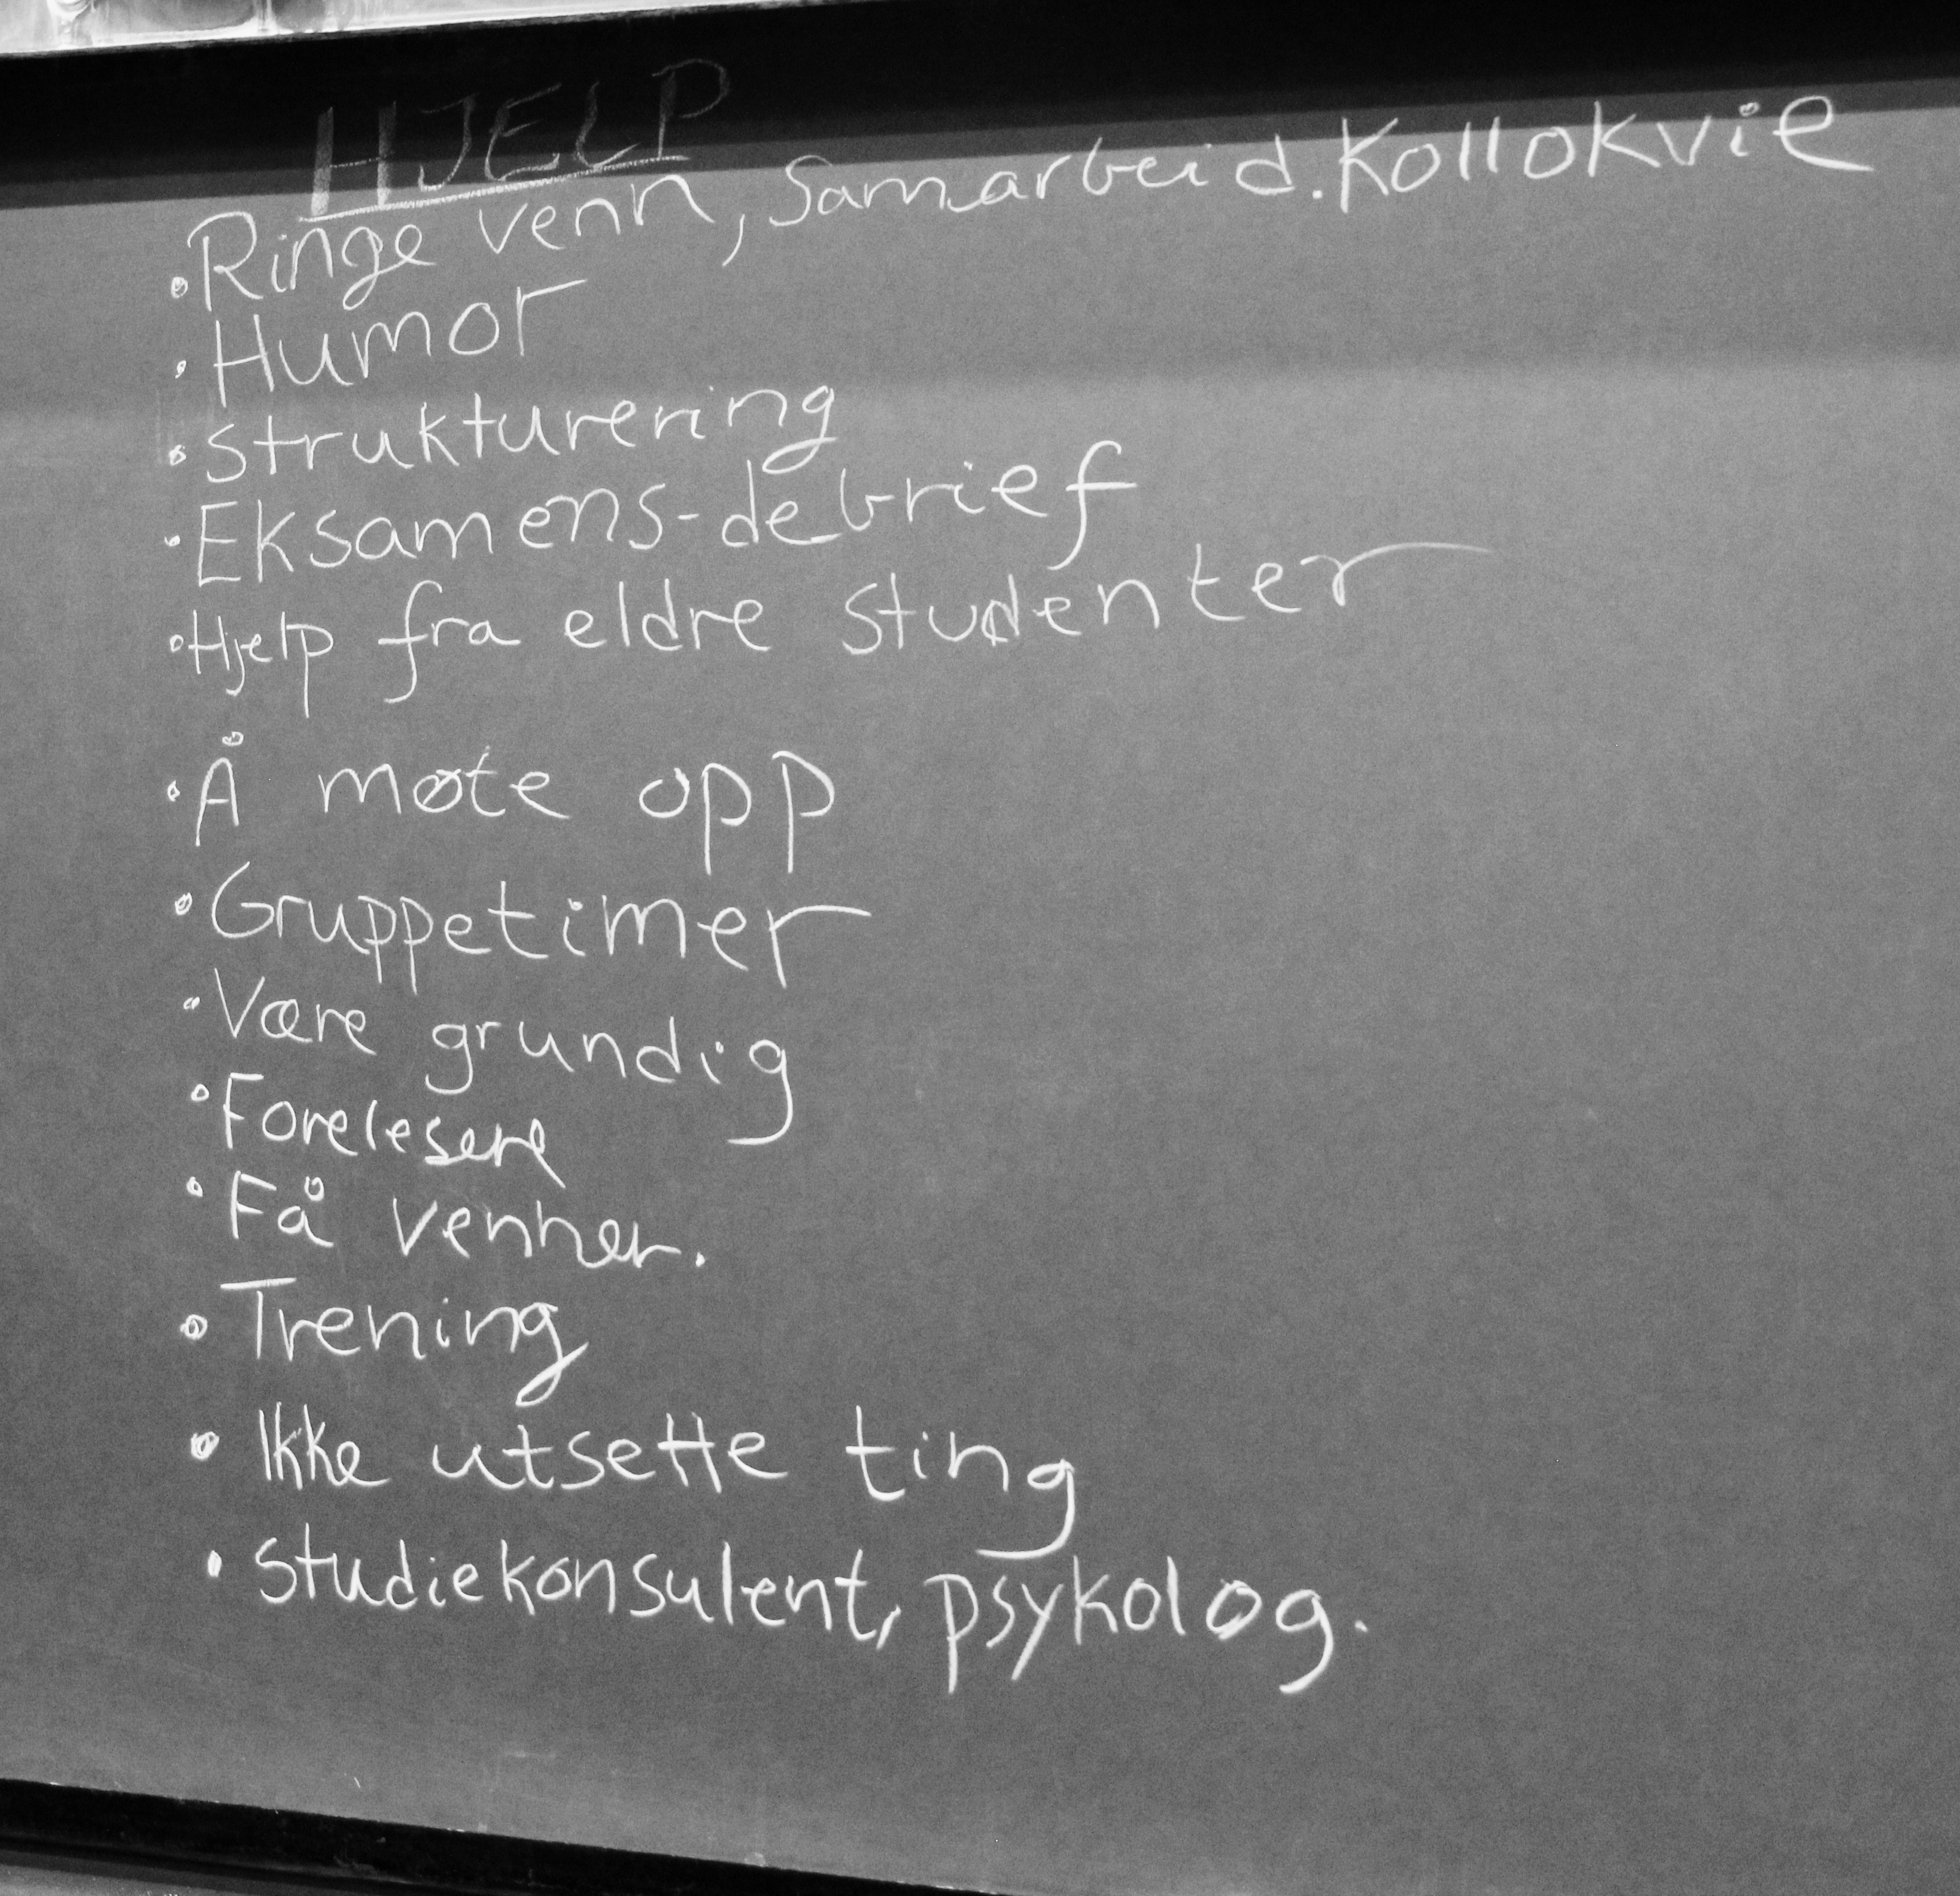 HJELP
• Ringe venn, Samarbeid. Kollokvie
• Humor
• Strukturering
• Eksamens-debrief
• Hjelp fra eldre studenter
• Å møte opp
• Gruppetimer
• Være grundig
• Forelesere
• Få venner.
• Trening
• Ikke utsette ting
• Studiekonsulent, psykolog.